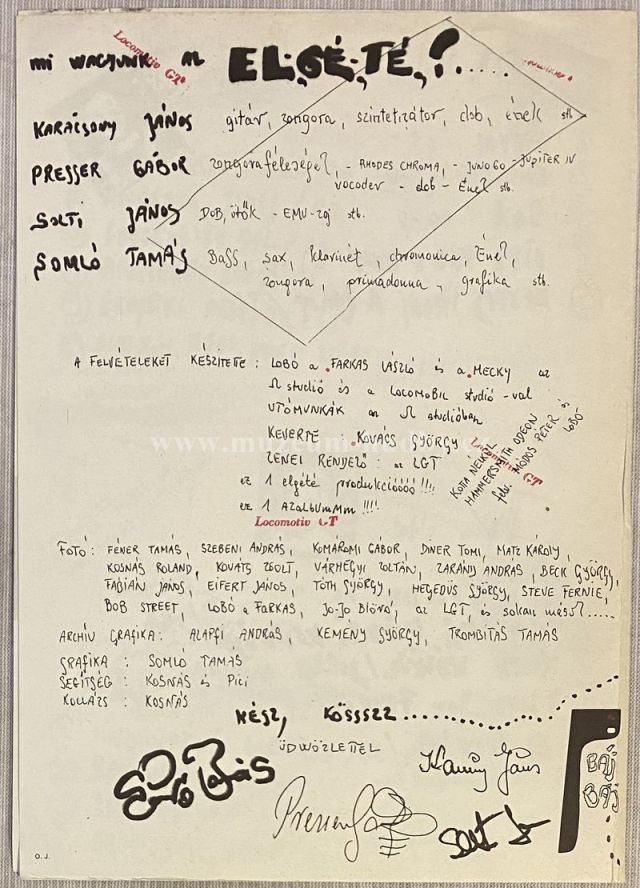 Locomotiv GT
MI VAGYUNK AZ EL·GÉ·TÉ,?.....
KARÁCSONY JÁNOS gitár, zongora, szintetizátor, dob, ének stb
PRESSER GÁBOR zongoraféleségek, - RHODES CHROMA, - JUNO 60 - JUPITER IV
vocoder - dob - Ének stb.
SOLTI JÁNOS DOB, ütők - EMU-zaj stb.
SOMLÓ TAMÁS BASS, sax, klarinét, chromonica, Ének,
zongora, primadonna, grafika stb.
A FELVÉTELEKET KÉSZITETTE : LOBÓ a FARKAS LÁSZLÓ és a MECKY az
Ω studió és a LOCOMOBIL studió-val
UTÓMUNKÁK az Ω studióban
KEVERTE : KOVÁCS GYÖRGY
ZENEI RENDEZŐ : az LGT
ez 1 elgété produkcióóóó !!!!
ez 1 AZalbumMm !!!!
KOTTA NÉLKÜL
HAMMERSMITH ODEON
felv. MÓDOS PÉTER és
LOBÓ
Locomotiv GT
Locomotiv GT
www.muzeum
FOTÓ : FÉNER TAMÁS, SZEBENI ANDRÁS, KOMÁROMI GÁBOR, DINER TOMI, MATZ KÁROLY,
KOSNÁS ROLAND, KOVÁTS ZSOLT, VÁRHEGYI ZOLTÁN, ZARÁND ANDRÁS, BECK GYÖRGY,
FÁBIÁN JÁNOS, EIFERT JÁNOS, TÓTH GYÖRGY, HEGEDÜS GYÖRGY, STEVE FERNIE,
BOB STREET, LOBÓ a FARKAS, JO-JO az LGT, és sokan mások.....
ARCHÍV GRAFIKA : ALAPFI ANDRÁS, KEMÉNY GYÖRGY, TROMBITÁS TAMÁS
GRAFIKA : SOMLÓ TAMÁS
SEGITSÉG : KOSNÁS és Pici
KOLLÁZS : KOSNÁS
KÉSZ, KÖSSSZZ..........
ÜDWÖZLETTEL
BÁJ
BÁJ
O. J.